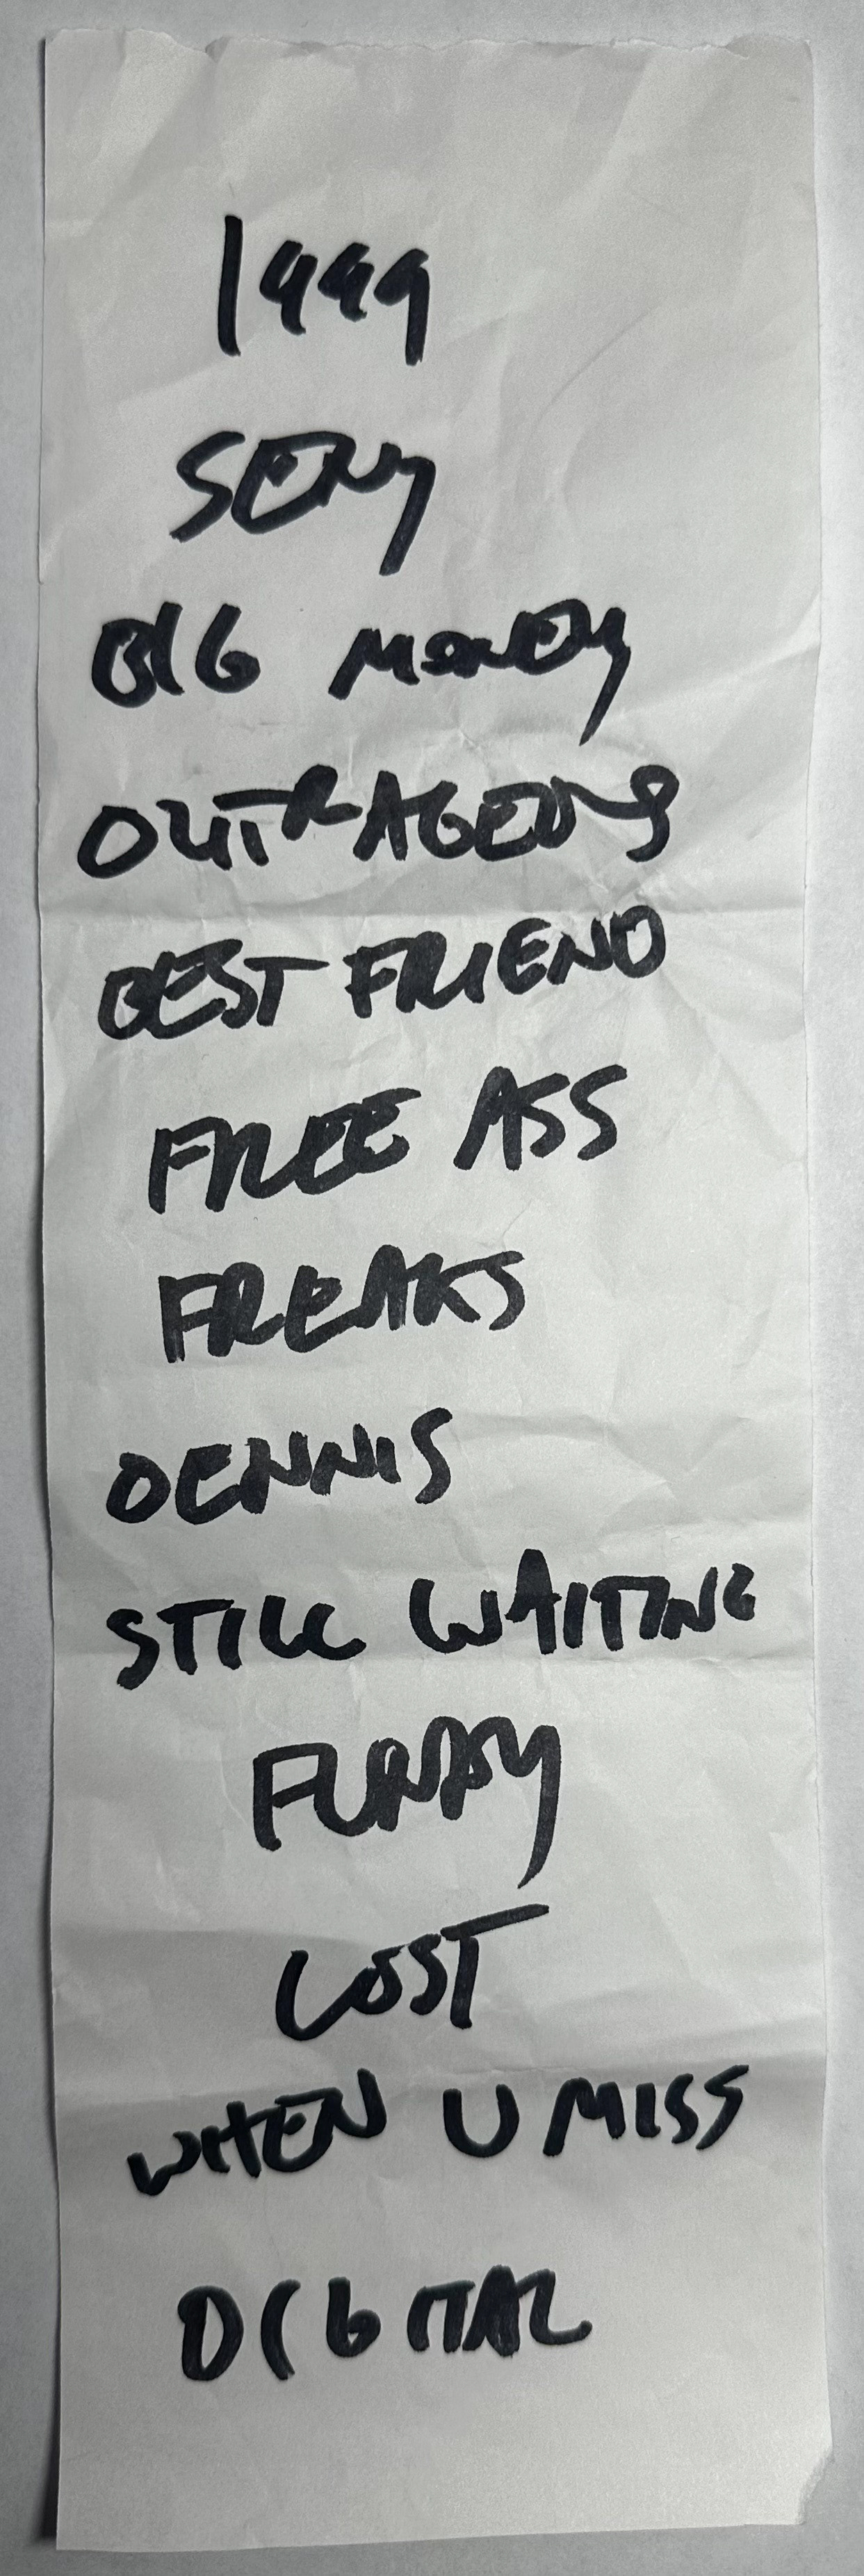 1999
SEXY
BIG MONEY
OUTRAGEOUS
BEST FRIEND
FREE ASS
FREAKS
DENNIS
STILL WAITING

LOST
WHEN U MISS
DIGITAL